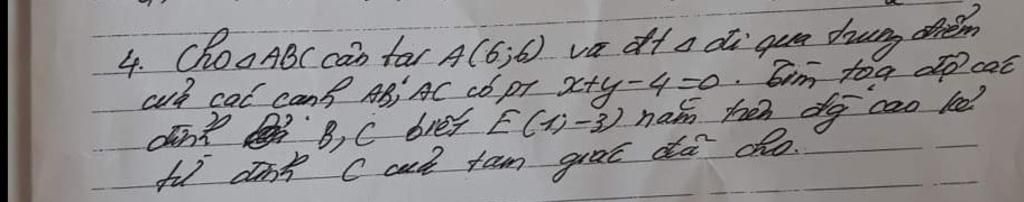 4. Cho △ABC cân tại A(6;6) và đt △ đi qua trung điểm
của các cạnh AB, AC có pt x+y-4=0. Tìm toạ độ các
đỉnh B, C biết E(1;-3) nằm trên đg cao kẻ
từ đỉnh C của tam giác đã cho.